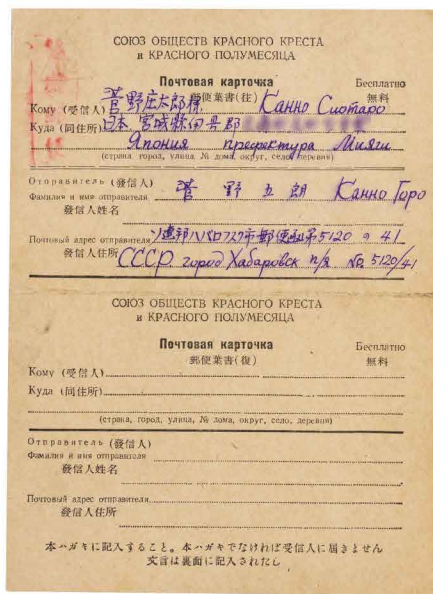 СОЮЗ ОБЩЕСТВ КРАСНОГО КРЕСТА
и КРАСНОГО ПОЛУМЕСЯЦА
Почтовая карточка
Бесплатно
郵便葉書(往) 無料
Кому (受信人) 菅野庄太郎様 Канно Сиотаро
Куда (同住所) 日本 宮城縣伯具郡
Япония префектура Мияги
(страна город, улица № дома, округ, село, деревня)
Отправитель (發信人)
Фамилия и имя отправителя 菅野五朗 Канно Горо
發信人姓名
Почтовый адрес отправителя ソ連邦ハバロフスク市郵便函第5120の41
發信人住所 СССР. город Хабаровск п/я № 5120/41
СОЮЗ ОБЩЕСТВ КРАСНОГО КРЕСТА
и КРАСНОГО ПОЛУМЕСЯЦА
Почтовая карточка
Бесплатно
郵便葉書(復) 無料
Кому (受信人)
Куда (同住所)
(страна, город, улица, № дома, округ, село, деревня)
Отправитель (發信人)
Фамилия и имя отправителя
發信人姓名
Почтовый адрес отправителя
發信人住所
本ハガキに記入すること。本ハガキでなければ受信人に届きません
文言は裏面に記入されたし